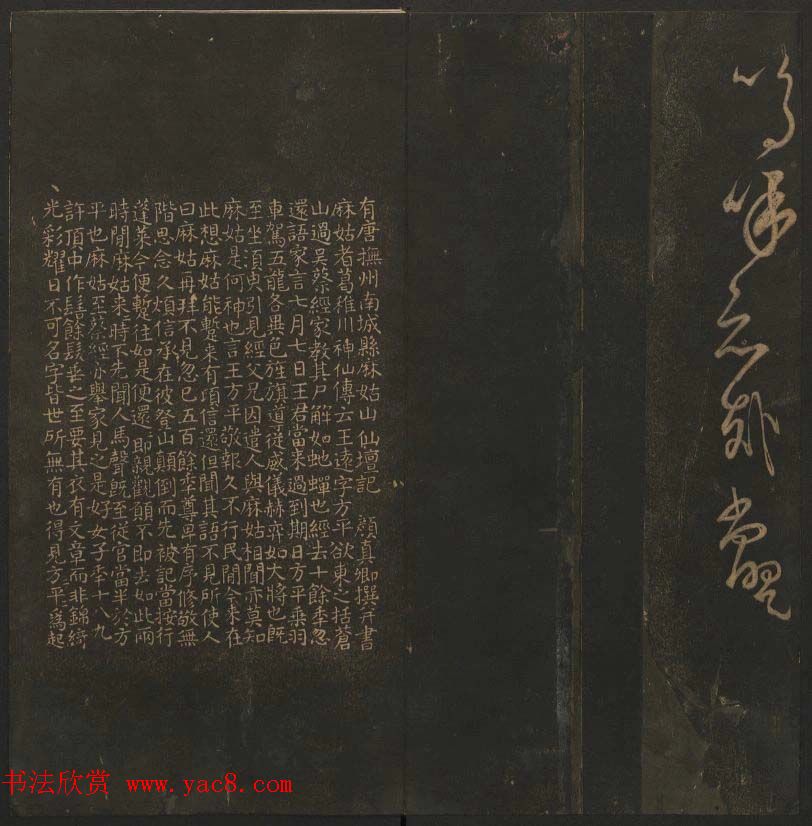 有唐撫州南城縣麻姑山仙壇記 顏真卿撰并書
麻姑者葛稚川神仙傳云王遠字方平欲東之括蒼
山過吳蔡經家教其尸解如虵蟬也經去十餘年忽
還語家言七月七日王君當來過到期日方平乘羽
車駕五龍各異色旌旗導從威儀赫弈如大將也既
至坐須臾引見經父兄因遣人與麻姑相聞亦莫知
麻姑是何神也言王方平敬報久不行民間今來在
此想麻姑能暫來有頃信還但聞其語不見所使人
曰麻姑再拜不見忽已五百餘年尊卑有序修敬無
階思念久煩信承在彼登山顛倒而先被記當按行
蓬萊今便暫往如是便還即親觀願不即去如此兩
時間麻姑來時不先聞人馬聲既至從官當半於方
平也麻姑至蔡經亦舉家見之是好女子年十八九
許頂中作髻餘髮垂之至要其衣有文章而非錦綺
光彩耀日不可名字皆世所無有也得見方平為起
书法欣赏 www.yac8.com